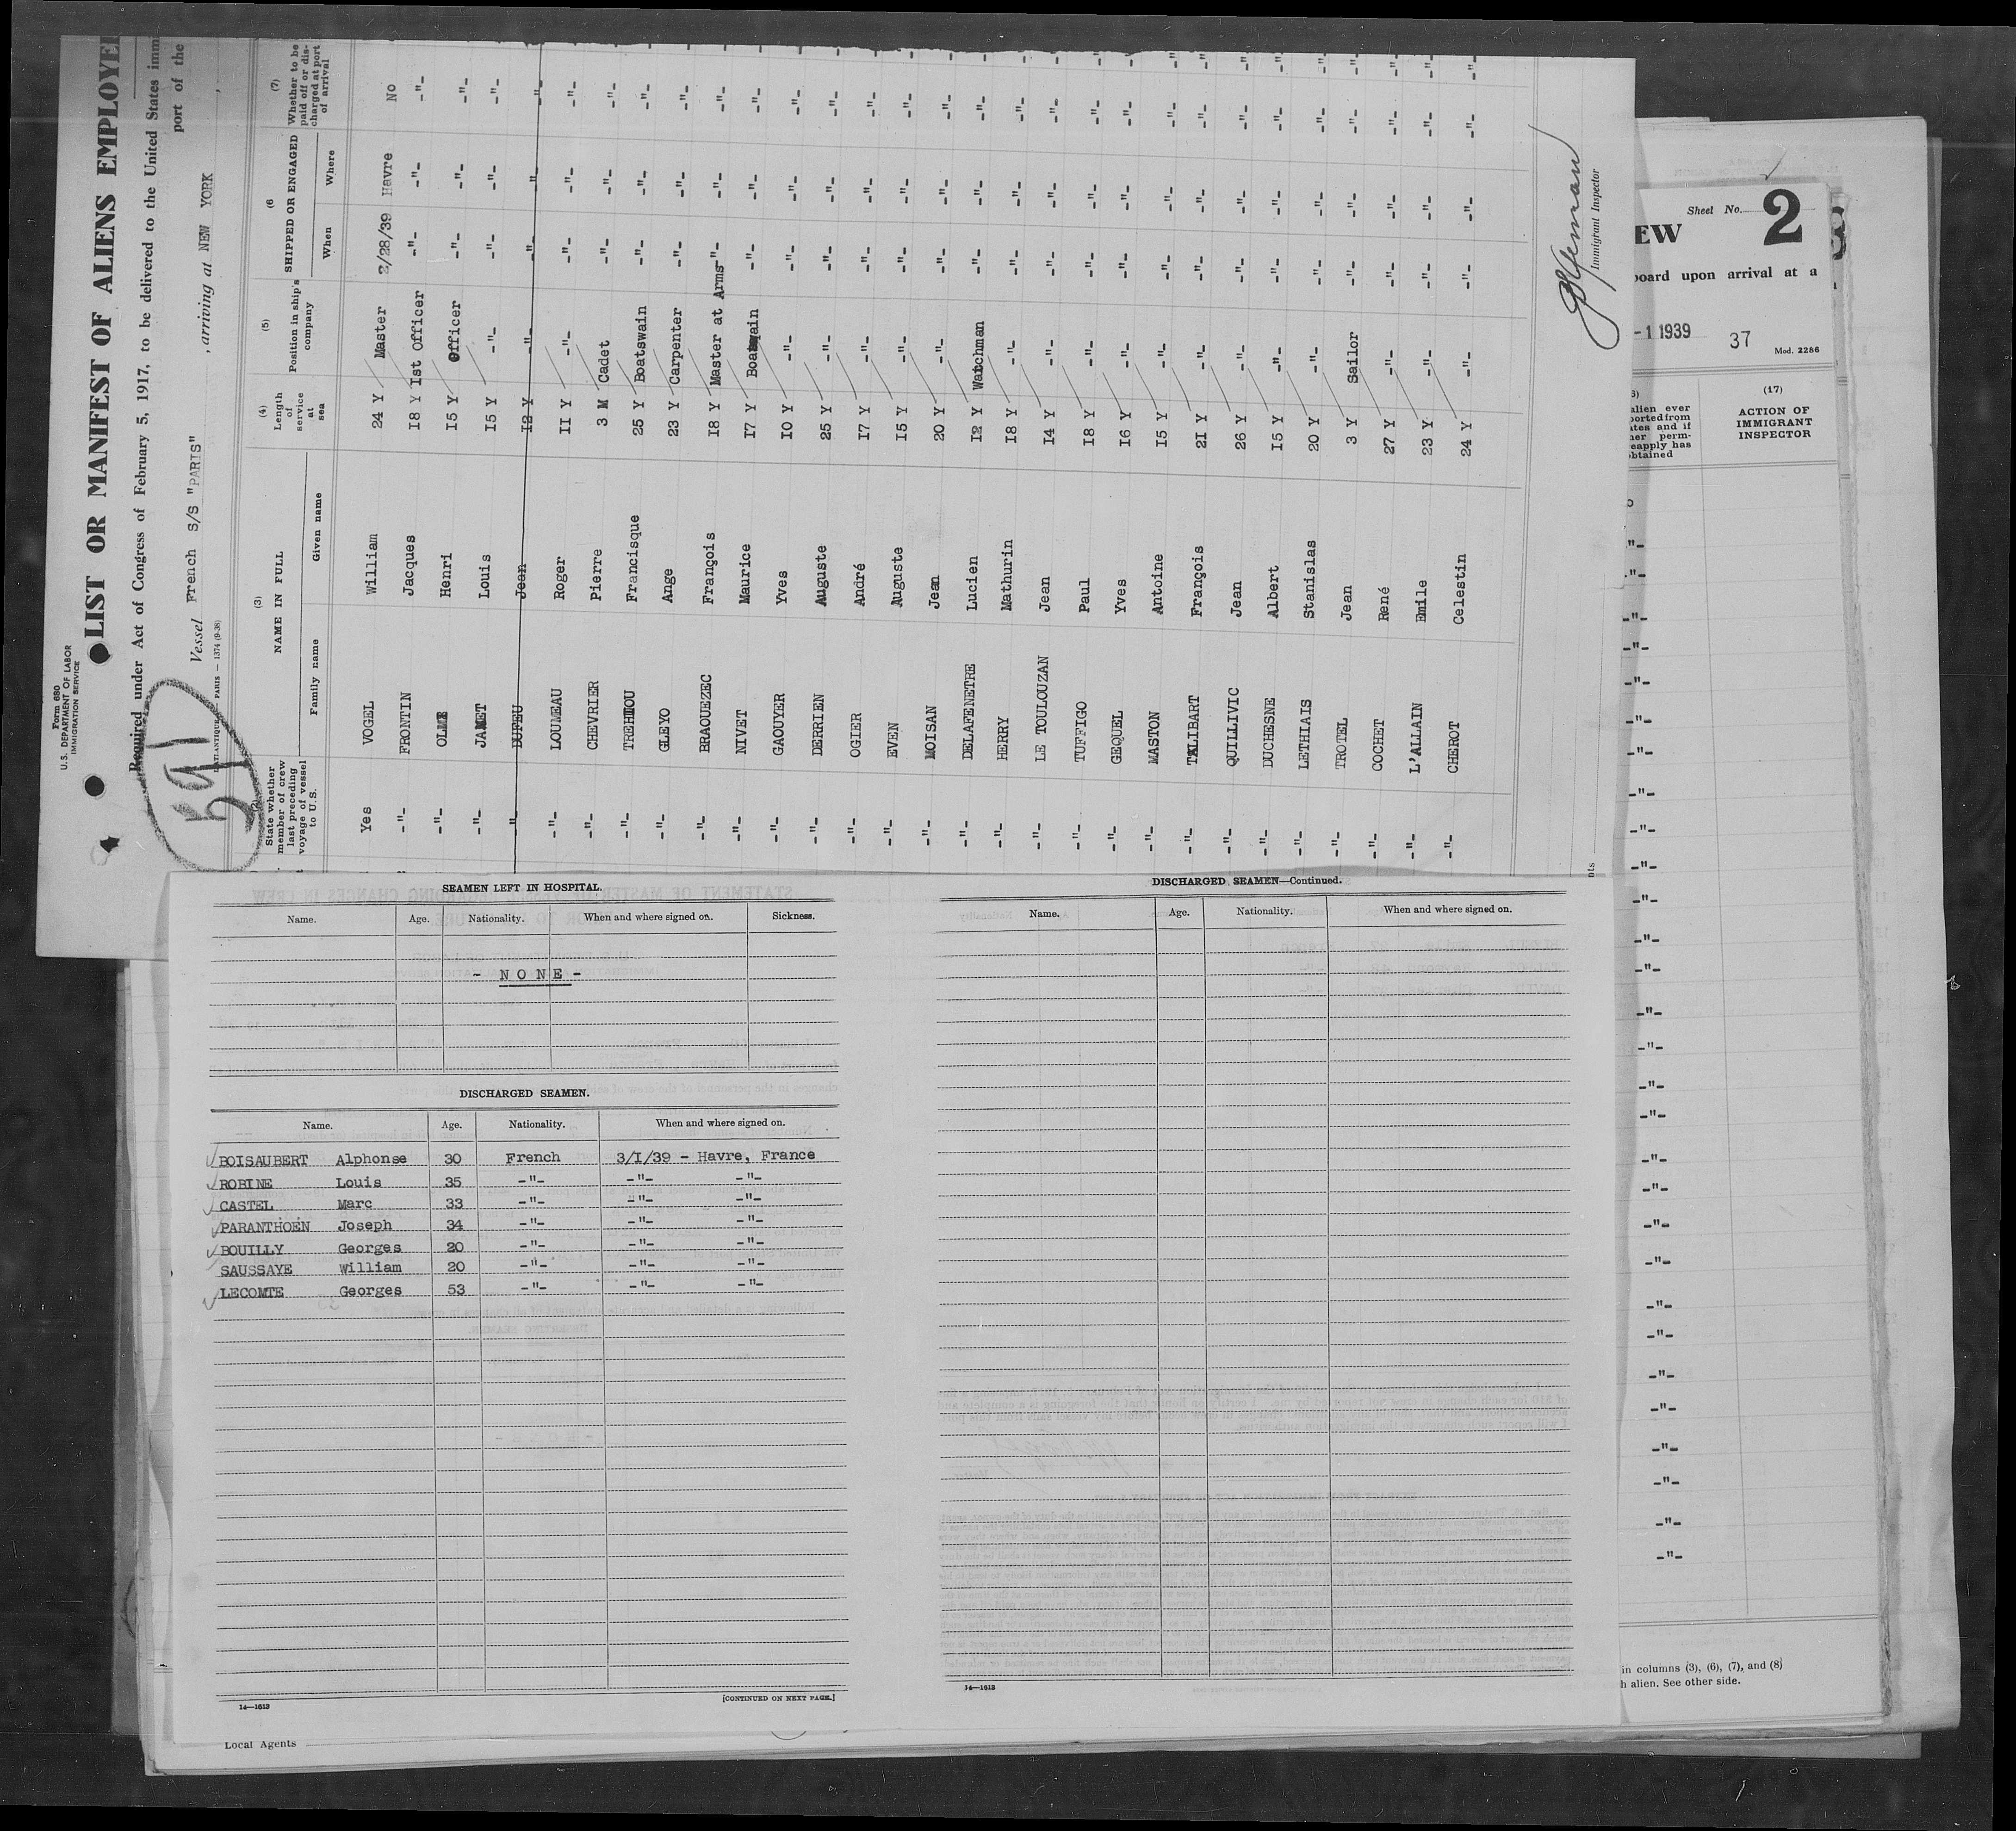 Form 680
U.S. DEPARTMENT OF LABOR
IMMIGRATION SERVICE
LIST OR MANIFEST OF ALIENS EMPLOYE
Required under Act of Congress of February 5, 1917, to be delivered to the United States immi
port of the
Vessel French S/S "PARIS" , arriving at NEW YORK ,
591
ATLANTIQUE, PARIS — 1374 (9-38)
State whether member of crew last preceding voyage of vessel to U.S.
(3) NAME IN FULL
Family name Given name
(4) Length of service at sea
(5) Position in ship's company
(6 SHIPPED OR ENGAGED
When Where
(7) Whether to be paid off or discharged at port of arrival
Yes VOGEL William 24 Y Master 2/28/39 Havre No
-"- FRONTIN Jacques I8 Y Ist Officer -"- -"- -"-
-"- OLME Henri I5 Y Officer -"- -"- -"-
-"- JAMET Louis I5 Y -"- -"- -"- -"-
-"- DUFEU Jean I2 Y -"- -"- -"- -"-
-"- LOUMEAU Roger II Y -"- -"- -"- -"-
-"- CHEVRIER Pierre 3 M Cadet -"- -"- -"-
-"- TREHIOU Francisque 25 Y Boatswain -"- -"- -"-
-"- GLEYO Ange 23 Y Carpenter -"- -"- -"-
-"- BRAOUEZEC François I8 Y Master at Arms -"- -"- -"-
-"- NIVET Maurice I7 Y Boatswain -"- -"- -"-
-"- GAOUYER Yves I0 Y -"- -"- -"- -"-
-"- DERRIEN Auguste 25 Y -"- -"- -"- -"-
-"- OGIER André I7 Y -"- -"- -"- -"-
-"- EVEN Auguste I5 Y -"- -"- -"- -"-
-"- MOISAN Jean 20 Y -"- -"- -"- -"-
-"- DELAFENETRE Lucien I2 Y Watchman -"- -"- -"-
-"- HERRY Mathurin I8 Y -"- -"- -"- -"-
-"- LE TOULOUZAN Jean I4 Y -"- -"- -"- -"-
-"- TUFFIGO Paul I8 Y -"- -"- -"- -"-
-"- GEQUEL Yves I6 Y -"- -"- -"- -"-
-"- MASTON Antoine I5 Y -"- -"- -"- -"-
-"- TALIBART François 2I Y -"- -"- -"- -"-
-"- QUILLIVIC Jean 26 Y -"- -"- -"- -"-
-"- DUCHESNE Albert I5 Y -"- -"- -"- -"-
-"- LETHIAIS Stanislas 20 Y -"- -"- -"- -"-
-"- TROTEL Jean 3 Y Sailor -"- -"- -"-
-"- COCHET René 27 Y -"- -"- -"- -"-
-"- L'ALLAIN Emile 23 Y -"- -"- -"- -"-
-"- CHEROT Celestin 24 Y -"- -"- -"- -"-
Immigrant Inspector
Sheet No. 2
EW
board upon arrival at a
-1 1939 37
Mod. 2286
alien ever
ported from
ates and if
her perm-
eapply has
obtained
(17)
ACTION OF
IMMIGRANT
INSPECTOR
in columns (3), (6), (7), and (8)
h alien. See other side.
SEAMEN LEFT IN HOSPITAL.
Name. Age. Nationality. When and where signed on. Sickness.
- N O N E -
DISCHARGED SEAMEN.
Name. Age. Nationality. When and where signed on.
BOISAUBERT Alphonse 30 French 3/I/39 - Havre, France
ROBINE Louis 35 -"- -"- -"-
CASTEL Marc 33 -"- -"- -"-
PARANTHOËN Joseph 34 -"- -"- -"-
BOUILLY Georges 20 -"- -"- -"-
SAUSSAYE William 20 -"- -"- -"-
LECOMTE Georges 53 -"- -"- -"-
14—1613 [CONTINUED ON NEXT PAGE.]
DISCHARGED SEAMEN—Continued.
Name. Age. Nationality. When and where signed on.
14—1613
Local Agents